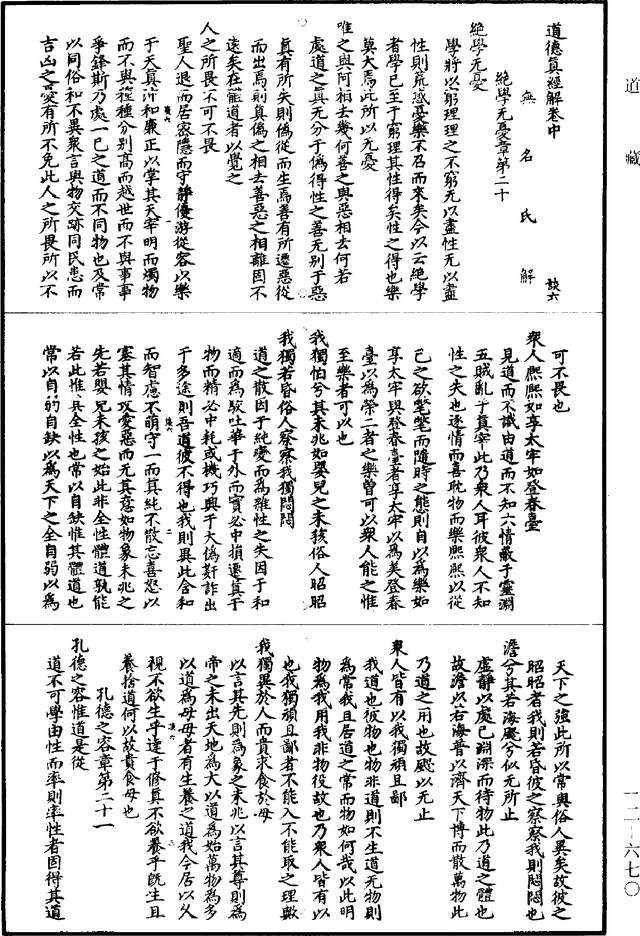 道德真經解卷中
談六
無名氏解
絕學无憂章第二十
絕學无憂
學將以窮理理之不窮无以盡性无以盡
性則荒惑憂樂不召而來矣今以云絕學
者學已至于窮理其性得矣性之得也樂
莫大焉此所以无憂
唯之與阿相去幾何善之與惡相去何若
處道之真无分于偽得性之善无别于惡
真有所失則偽從而生焉善有所遷惡從
而出焉則真偽之相去善惡之相離固不
遠矣在體道者以覺之
人之所畏不可不畏
聖人退而居密隱而守靜優游從容以樂
于天真沖和廉正以掌其天宰明而燭物
而不與種種分别高而越世而不與事事
爭鋒斯乃處一己之道而不同物也及常
以同俗和不異衆言與物交跡同民患而
吉凶之憂有所不免此人之所畏所以不
可不畏也
衆人熙熙如享太牢如登春臺
見道而不識由道而不知六情蔽于靈淵
五賊亂于真宰此乃衆人耳彼衆人不知
性之失也逐情而喜耽物而樂熙熙以從
己之欲耄耄而隨時之態則自以為樂如
享太牢與登春臺者享太牢以為美登春
臺以為榮二者之樂曾可以衆人能之惟
至樂者可以也
我獨怕兮其未兆如嬰兒之未孩俗人昭昭
我獨若昏俗人察察我獨悶悶
道之散因于純變而為雜性之失因于和
適而為駁吐華于外而實必中損還真于
物而精必中耗或機巧興于大偽奸詐出
于多途則吾道彼不得也我則異此含和
而智慮不萌守一而真純不散忘喜怒以
塞其情攻愛惡而无其意如物象未兆之
先若嬰兒未孩之始此非全性體道孰能
若此惟其全性也常以自缺惟其體道也
常以自弱自缺以為天下之全自弱以為
天下之強此所以常與俗人異矣故彼之
昭昭者我則若昏彼之察察我則悶悶也
澹兮其若海飂兮似无所止
虛靜以處己淵深而待物此乃道之體也
故澹以右海普以濟天下博而散萬物此
乃道之用也故飂以无止
衆人皆有以我獨頑且鄙
我道也彼物也物非道則不生道无物則
為常我且居道之常而物如何哉以此明
物為我用我非物役故也乃衆人皆有以
也我獨頑且鄙者不能入不能取之理歟
我獨異於人而貴求食於母
以言其先則為象之未兆以言其尊則為
帝之未出天地為大以道為始萬物為多
以道為母母者有生養之道我今居以父
視不欲生乎達于修真不欲養乎旣生且
養捨道何以故貴食母也
孔德之容章第二十一
孔德之容惟道是從
道不可學由性而率則率性者固得其道
道藏
一二—六七〇